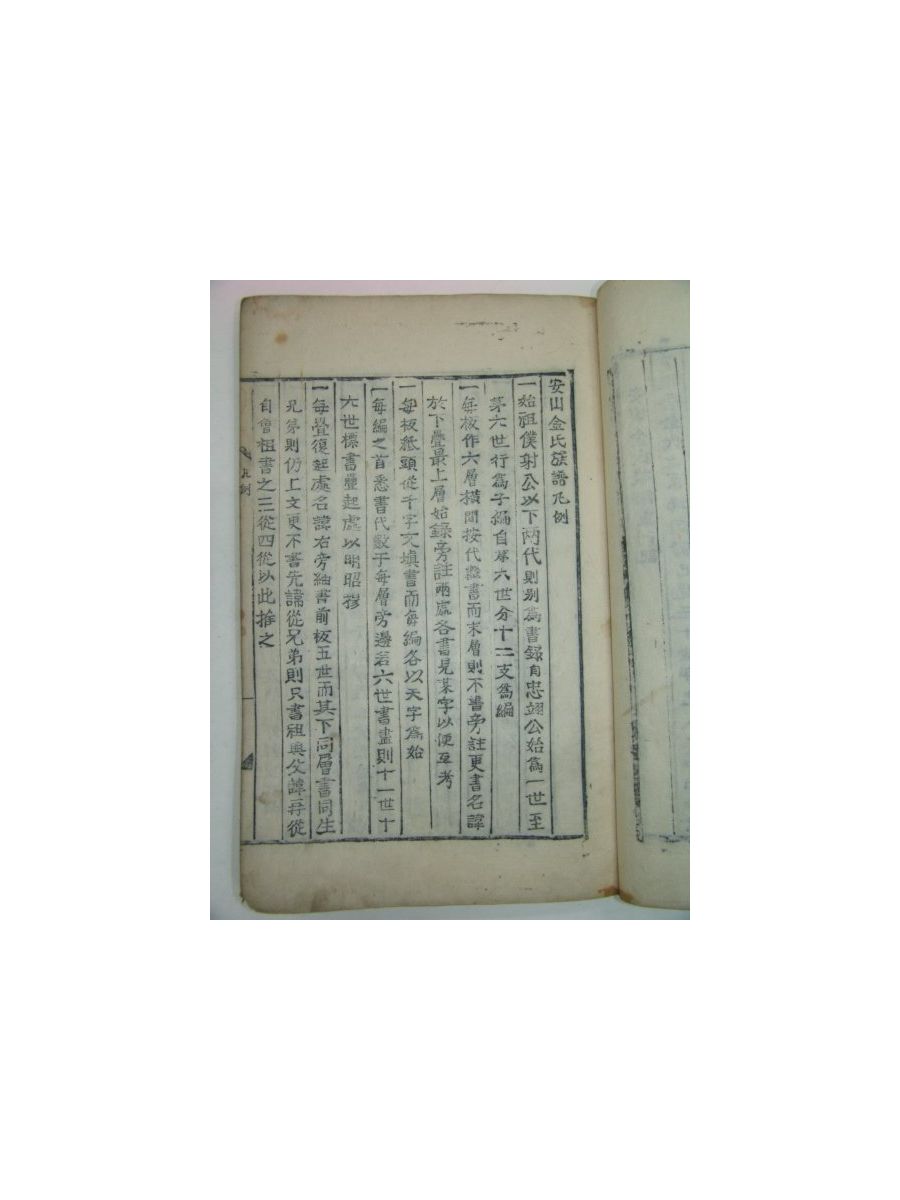 安山金氏族譜凡例
一始祖僕射公以下兩代則別爲書錄自忠翊公始爲一世至
第六世行爲子編自第六世分十二支爲編
一每板作六層橫間按代繼書而末層則不書旁註更書名諱
於下疊最上層始錄旁註兩處各書見某字以便互考
一每板紙頭從千字文塡書而每編各以天字爲始
一每編之首悉書代數于每層旁邊若六世書盡則十一世十
六世標書疊起處以明昭穆
一每疊復起處名諱右旁細書前板五世而其下同層書同生
兄弟則仍上文更不書先諱從兄弟則只書祖與父諱再從
自曾祖書之三從四從以此推之
凡例